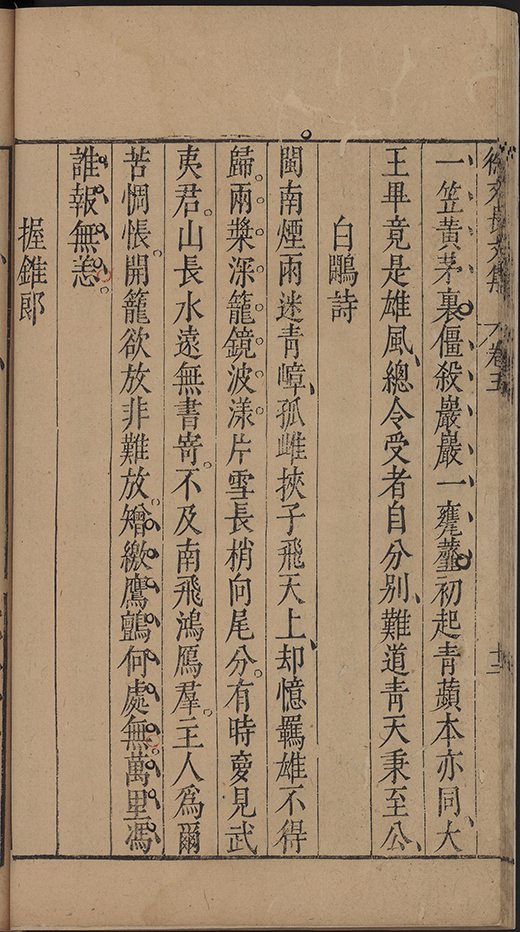 徐文長文集 卷五 十二
一笠黃茅裏僵殺巖巖一甕虀初起青蘋本亦同大
王畢竟是雄風總令受者自分別難道青天秉至公
白鷴詩
閩南煙雨迷青嶂孤雌挾子飛天上却憶羈雄不得
歸兩槳深籠鏡波漾片雪長梢向尾分有時夢見武
夷君山長水遠無書寄不及南飛鴻鴈羣主人為爾
苦惆悵開籠欲放非難放矰繳鷹鸇何處無萬里馮
誰報無恙
握錐郎